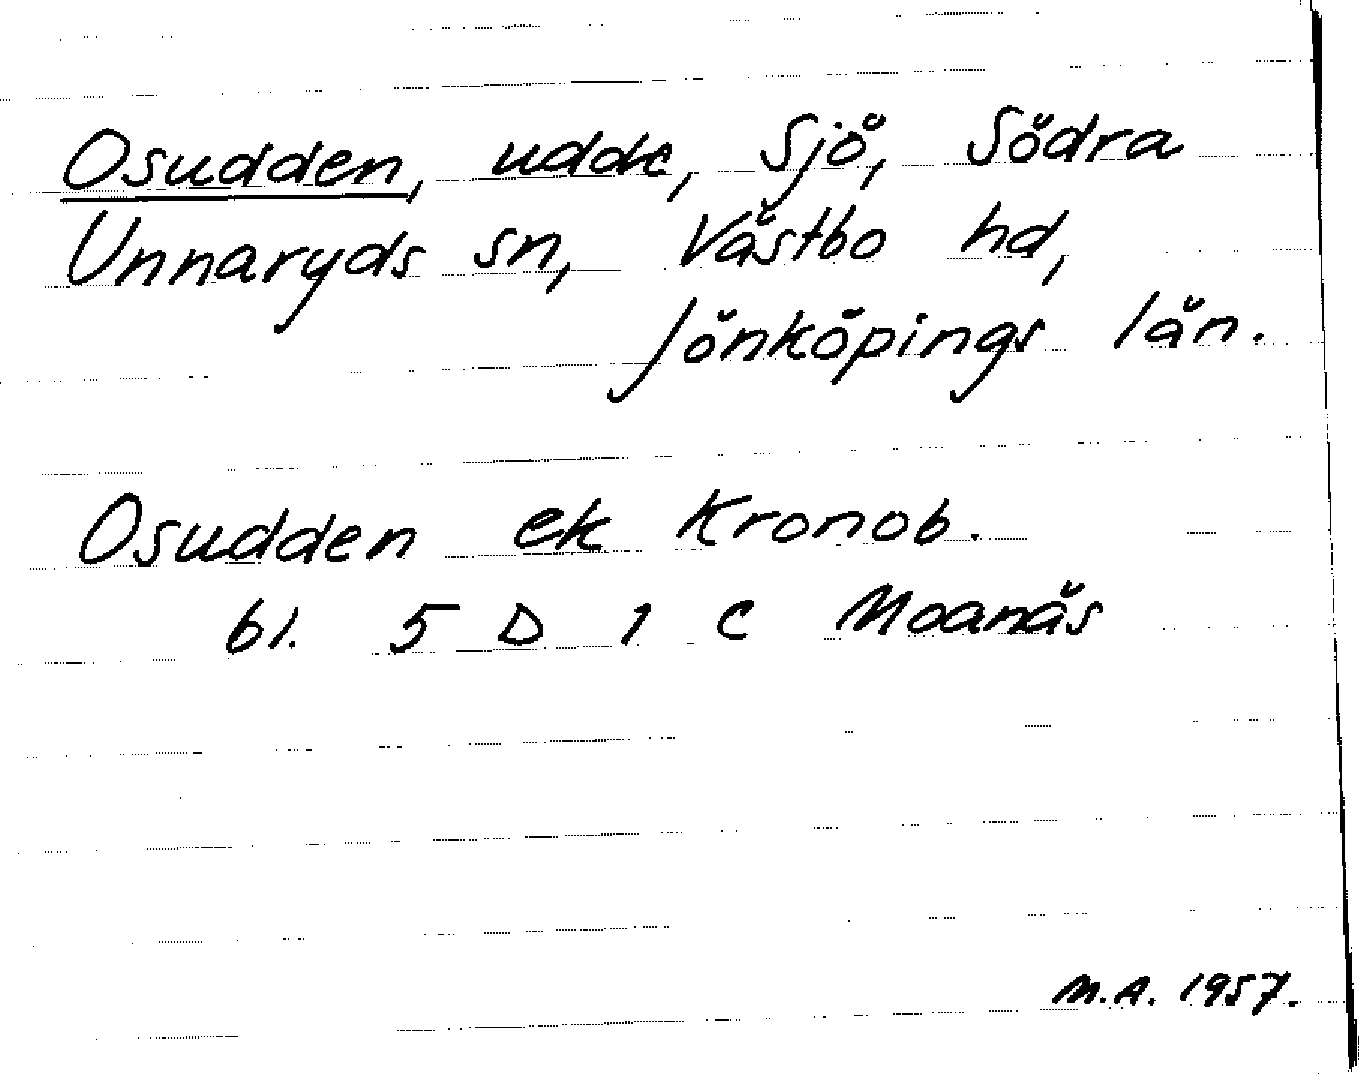 Osudden, udde, Sjö, Södra
Unnaryds sn, Västbo hd,
Jönköpings län.
Osudden ek Kronob.
bl. 5 D 1 c Moanäs
M.A. 1957.